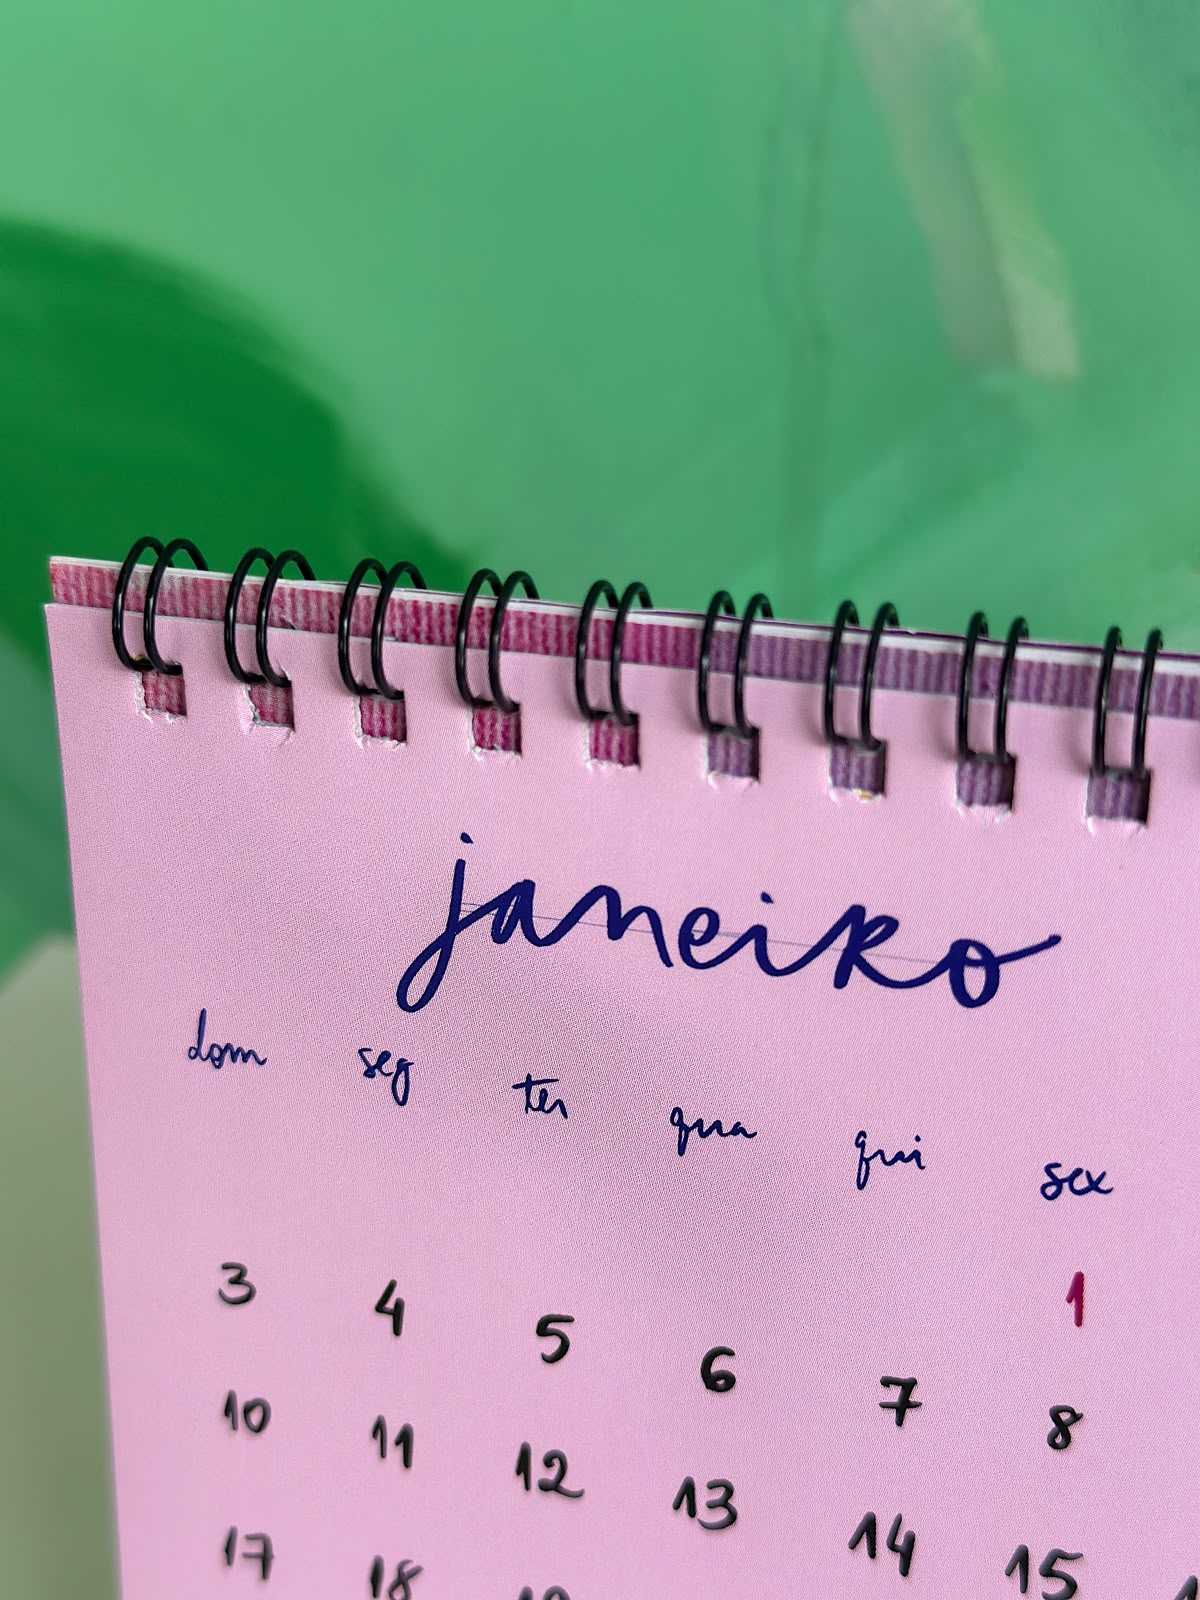 janeiro
dom seg ter qua qui sex
1
3 4 5 6 7 8
10 11 12 13 14 15
17 18